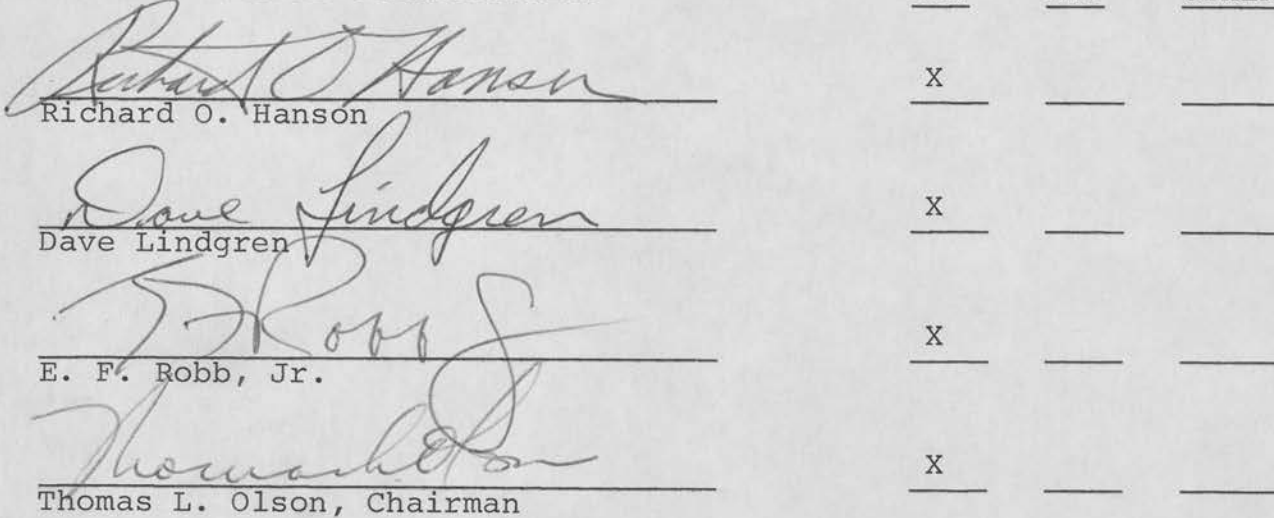 Richard O Hanson X
Richard O. Hanson
Dave Lindgren X
Dave Lindgren
E F Robb Jr X
E. F. Robb, Jr.
Thomas L Olson X
Thomas L. Olson, Chairman